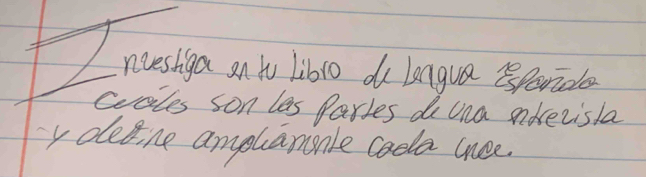 Investiga en tu Libro de Lengua Española
cuáles son las Partes de una entrevista
y define ampliamente cada una.